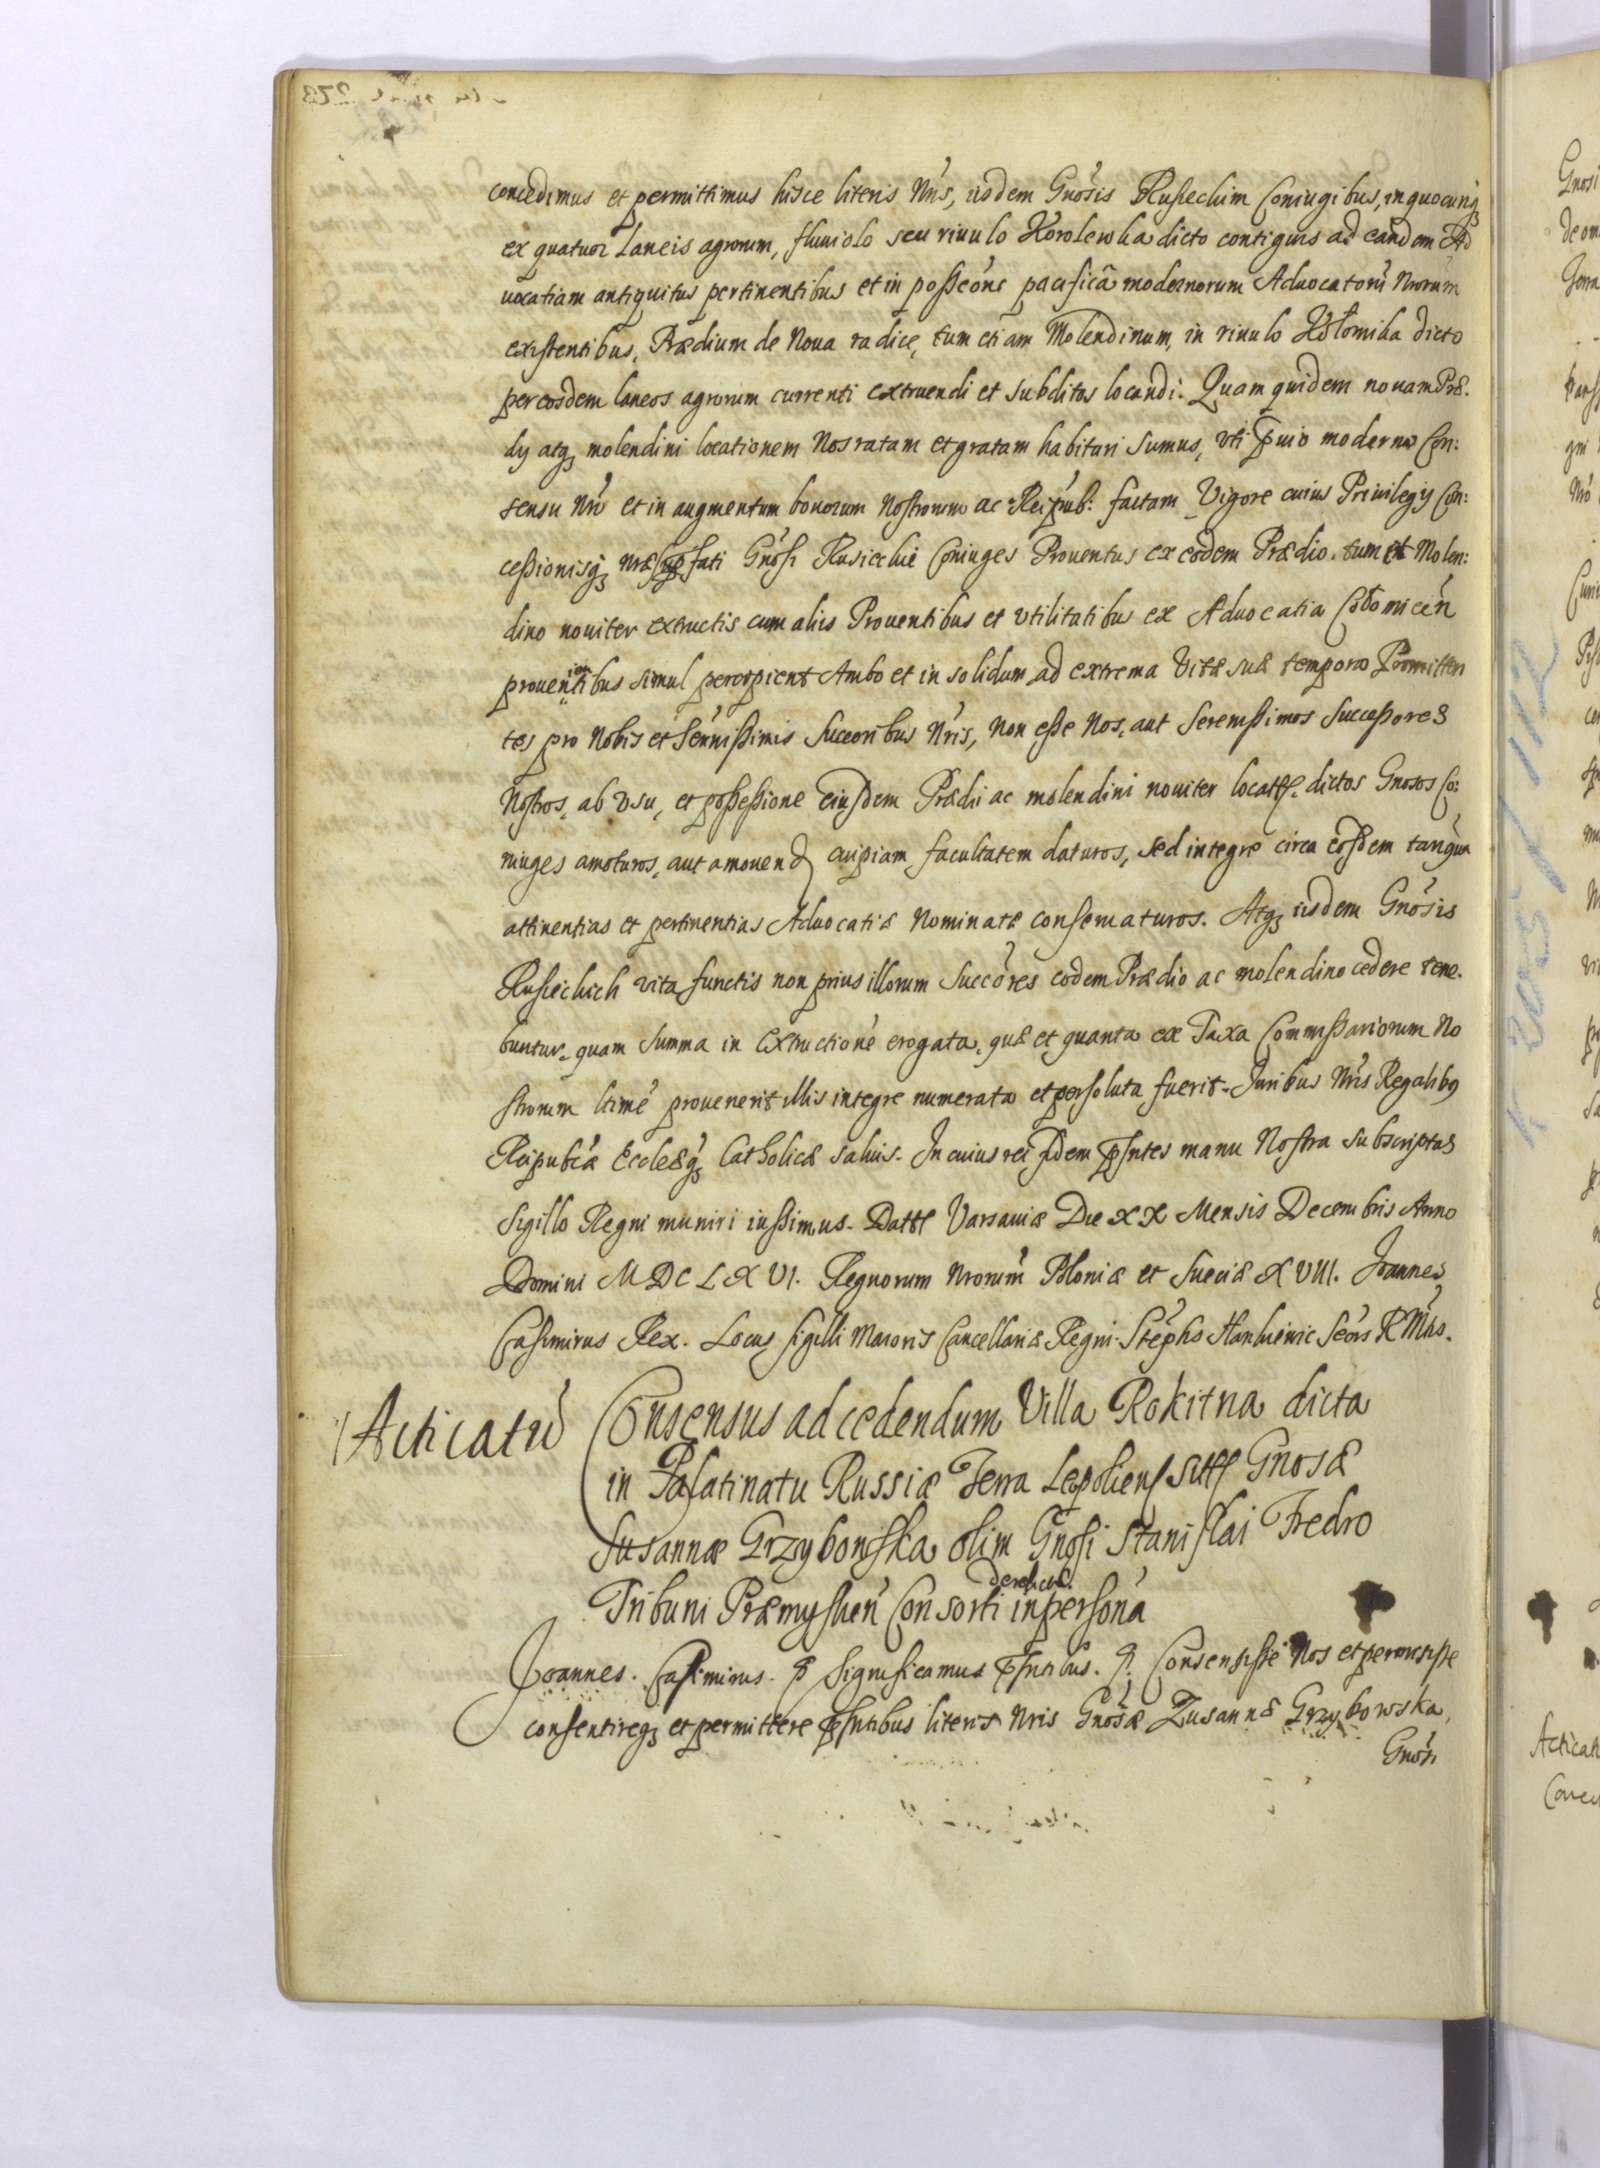 concedimus et permittimus hisce literis Nris, iisdem Gnosis Rusieckim Coniugibus, in quocunq3
ex quatuor Laneis agrorum, fluuiolo seu riuulo Korolewka dicto contiguis ad eandem Ad
uocatiam antiquitus pertinentibus et in posseone pacifica modernorum Aduocatoru Nrorum
existentibus, Prædium de Noua radice, tum etiam Molendinum, in riuulo Kołomika dicto
per eosdem laneos agrorum currenti extruendi et subditos locandi. Quam quidem nouam Præ.
dij atq3 molendini locationem Nos ratam et gratam habituri sumus, vti præuio moderno Con:
sensu Nro et in augmentum bonorum Nostrorum ac Reipub: factam. Vigore cuius Priuilegij Con:
cessionisq3 Nræ præfati Gnosi Rusieckie Coniuges Prouentus ex eodem Prædio. tum et Molen:
dino nouiter extructis cum aliis Prouentibus et vtilitatibus ex Aduocatia
prouenientibus simul percipient Ambo et in solidum ad extrema Vitæ suæ tempora Promitten
tes pro Nobis et Sernissimis Succoribus Nris, Non esse Nos, aut Serenissimos Successores
Nostros, ab vsu, et possessione eiusdem Prædii ac molendini nouiter locati. dictos Gnosos Co:
niuges amoturos, aut amouendi cuipiam facultatem daturos, sed integre circa eosdem tanqua
attinentias et pertinentias Aduocatiæ Nominatæ conseruaturos. Atq3 iisdem Gnosis
Rusieckich vita functis non prius illorum Succores eodem Prædio ac molendino cedere tene.
buntur, quam summa in Extructione erogata, quæ et quanta ex Taxa Commissariorum No
strorum ltime prouenerit illis integre numerata et persoluta fuerit. Iuribus Nris Regalibus
Reipublæ Ecclæq3 Catholicæ saluis. In cuius rei fidem pntes manu Nostra subscriptas
Sigillo Regni muniri iussimus. Datt Varsauiæ Die XX Mensis Decembris Anno
Domini MDCLXVI. Regnorum Nrorum Poloniæ et Sueciæ XVIII. Joannes
Casimirus Rex. Locus Sigilli Maioris Cancellariæ Regni. Stephs Hankiewic Secrs R Mtis.
Acticatu
Consensus ad cedendum Villa Rokitna dicta
in Palatinatu Russiæ Terra Leopoliens sitt Gnosæ
Susannæ Grzybowska olim Gnosi Stanislai Fredro
Tribuni Præmyslien Consorti derelictæ in persona
Joannes. Casimirus. Significamus pntibus. Consensisse Nos et permisisse
consentireq3 et permittere pntibus literis Nris Gnosæ Zusannæ Grzybowska,
Gnosi